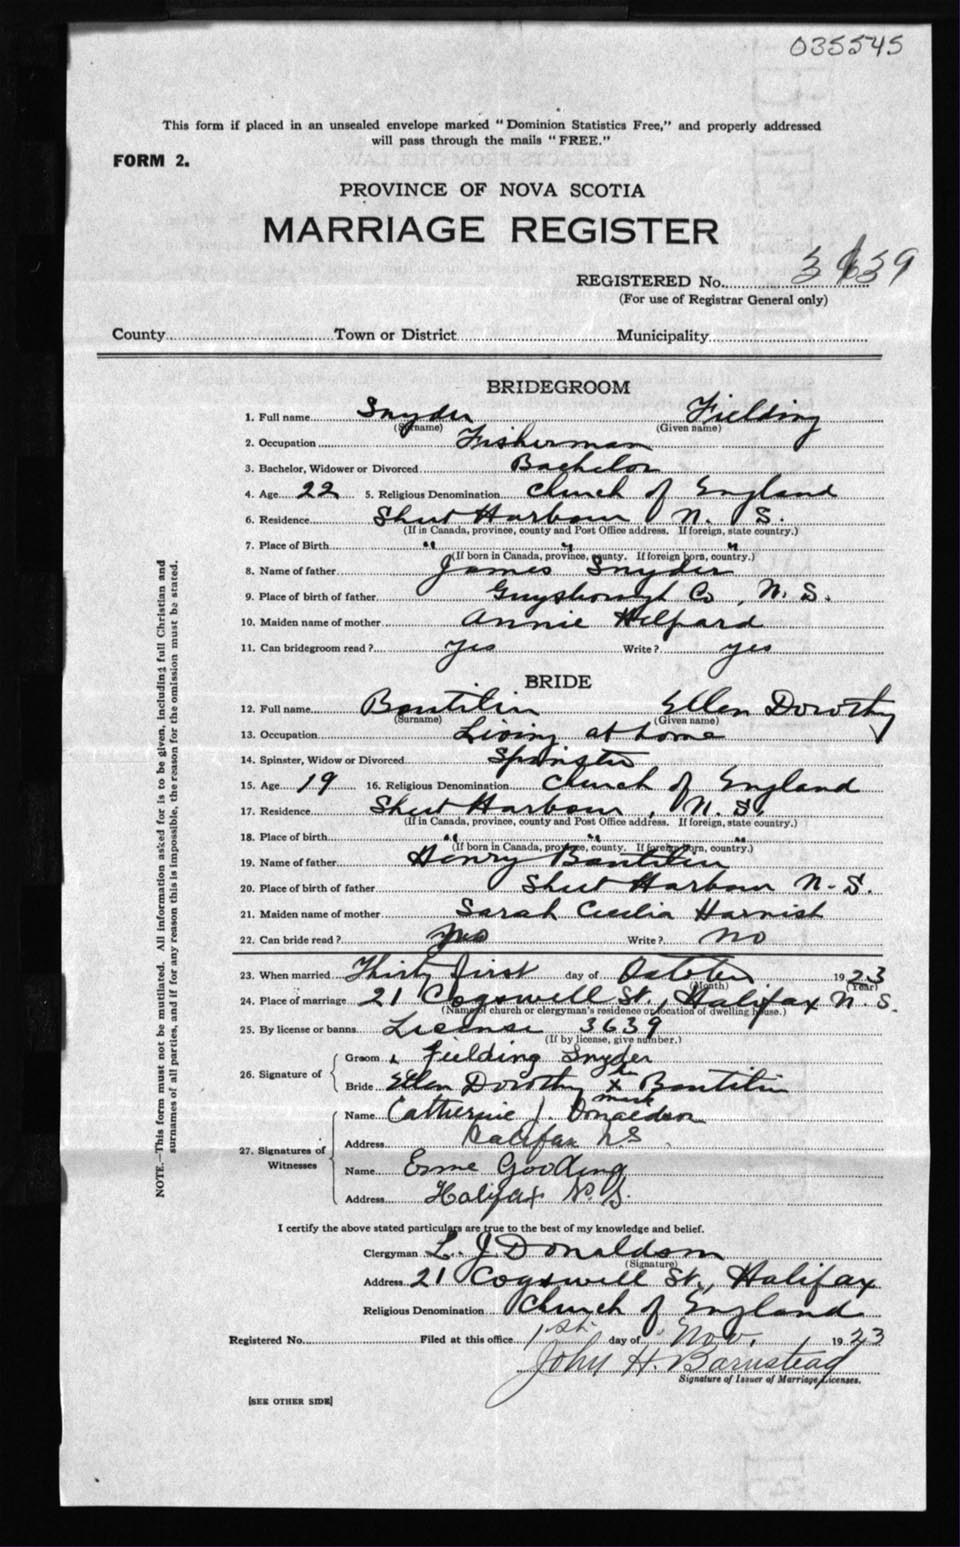 035545
This form if placed in an unsealed envelope marked "Dominion Statistics Free," and properly addressed
will pass through the mails "FREE."
FORM 2.
PROVINCE OF NOVA SCOTIA
MARRIAGE REGISTER
REGISTERED No. 3639
(For use of Registrar General only)
County Town or District Municipality
BRIDEGROOM
1. Full name Snyder Fielding
(Surname) (Given name)
2. Occupation Fisherman
3. Bachelor, Widower or Divorced Bachelor
4. Age 22 5. Religious Denomination Church of England
6. Residence Sheet Harbour N. S.
(If in Canada, province, county and Post Office address. If foreign, state country.)
7. Place of Birth " " "
(If born in Canada, province, county. If foreign born, country.)
8. Name of father James Snyder
9. Place of birth of father Guysborough Co, N. S.
10. Maiden name of mother Annie Hilpard
11. Can bridegroom read? yes Write? yes
BRIDE
12. Full name Boutilin Ellen Dorothy
(Surname) (Given name)
13. Occupation Living at home
14. Spinster, Widow or Divorced Spinster
15. Age 19 16. Religious Denomination Church of England
17. Residence Sheet Harbour, N. S.
(If in Canada, province, county and Post Office address. If foreign, state country.)
18. Place of birth " " "
(If born in Canada, province, county. If foreign born, country.)
19. Name of father Henry Boutilin
20. Place of birth of father Sheet Harbour N. S.
21. Maiden name of mother Sarah Cecilia Harnish
22. Can bride read? Write? no
23. When married Thirty first day of October 1923
(Month) (Year)
24. Place of marriage 21 Cogswell St., Halifax N. S.
(Name of church or clergyman's residence or location of dwelling house.)
25. By license or banns License 3639
(If by license, give number.)
26. Signature of
Groom Fielding Snyder
Bride Ellen Dorothy x Boutilin
mark
27. Signatures of Witnesses
Name Catherine J. Donaldson
Address Halifax NS
Name Esme Gooding
Address Halifax N. S.
I certify the above stated particulars are true to the best of my knowledge and belief.
Clergyman L. J. Donaldson
(Signature)
Address 21 Cogswell St., Halifax
Religious Denomination Church of England
Registered No. Filed at this office 1st day of Nov. 1923
John H. Barnstead
Signature of Issuer of Marriage Licenses.
[SEE OTHER SIDE]
NOTE.—This form must not be mutilated. All information asked for is to be given, including full Christian and
surnames of all parties, and if for any reason this is impossible, the reason for the omission must be stated.